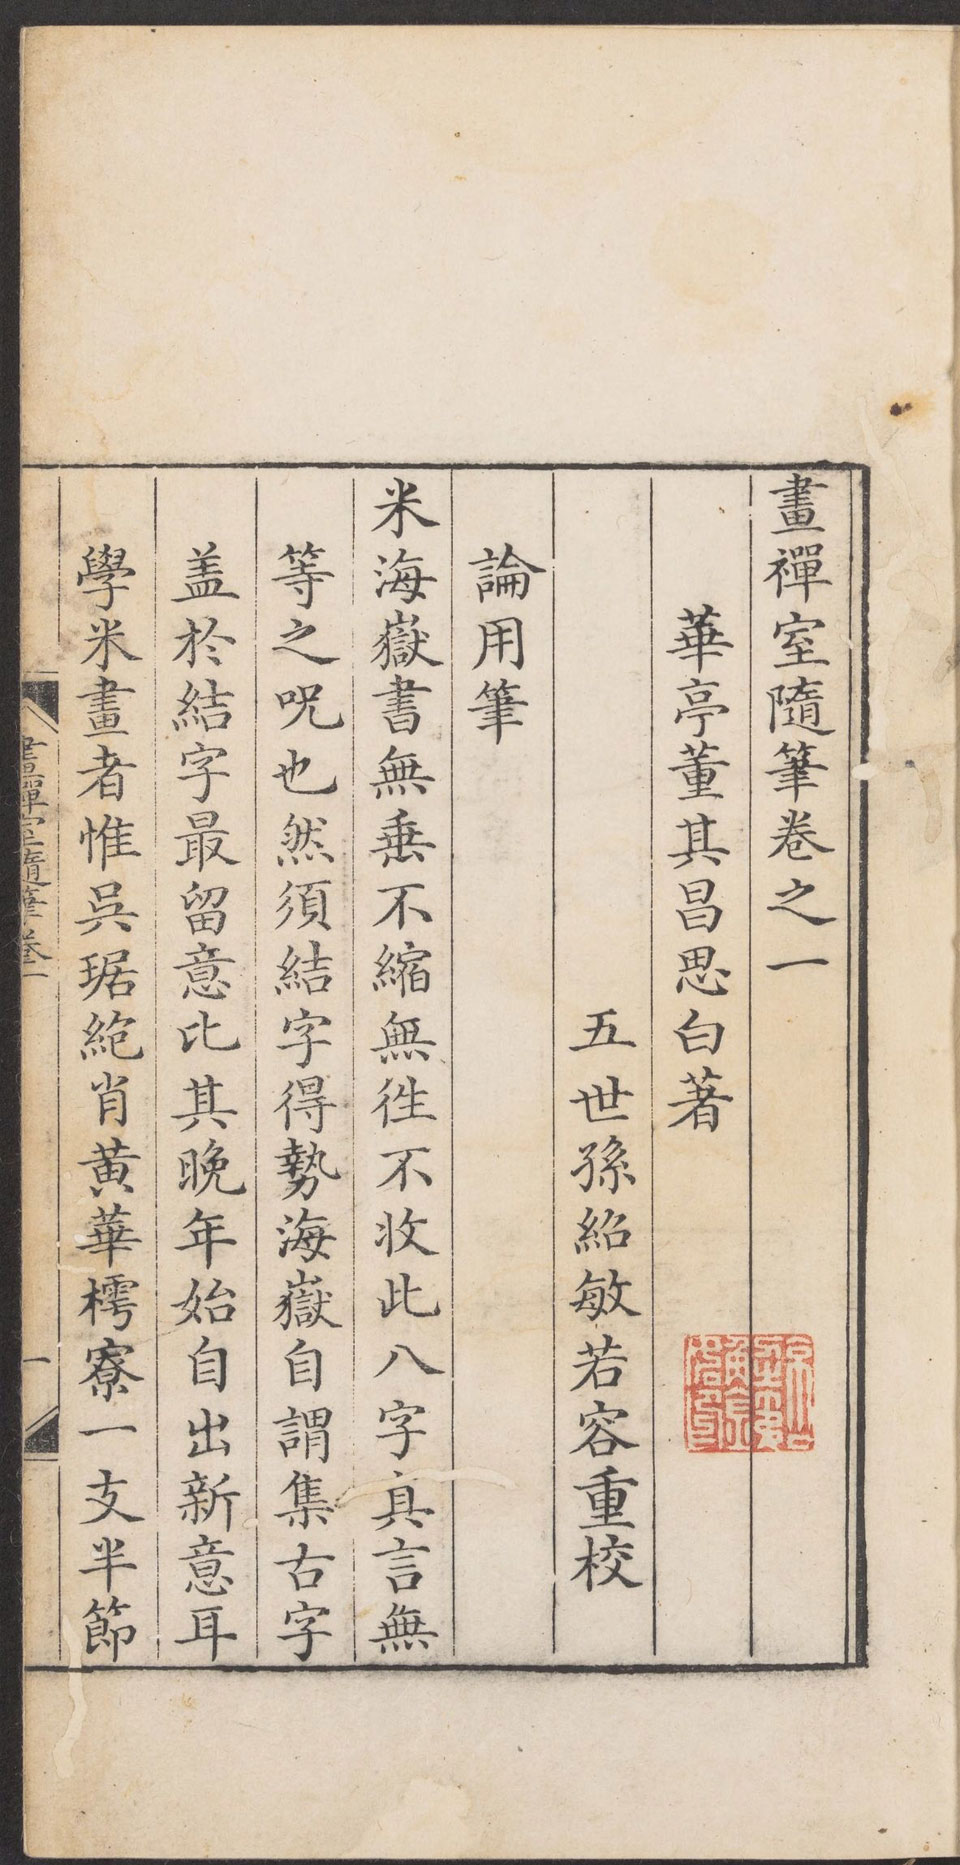 畫禪室隨筆卷之一
華亭董其昌思白著
五世孫紹敏若容重校
論用筆
米海嶽書無垂不縮無徃不收此八字真言無
等之呪也然須結字得勢海嶽自謂集古字
盖於結字最留意比其晩年始自出新意耳
學米畫者惟吳琚絕肖黃華樗寮一支半節
畫禪室隨筆卷一
一